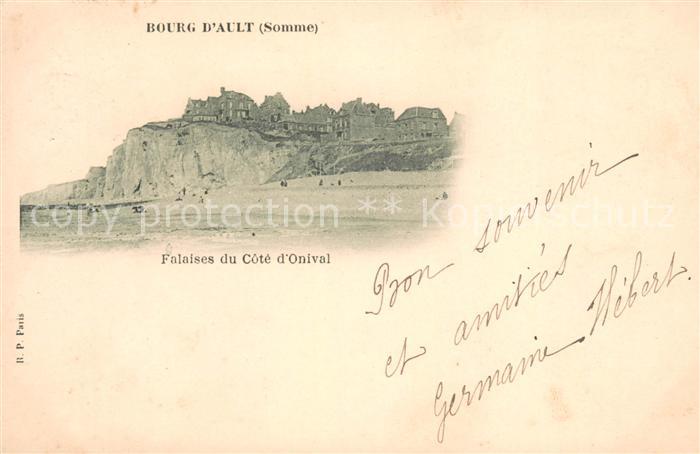 BOURG D'AULT (Somme)
copy protection ** Kopierschutz
Falaises du Côté d'Onival
B. P. Paris
Bon souvenir
et amitiés
Germaine Hébert.